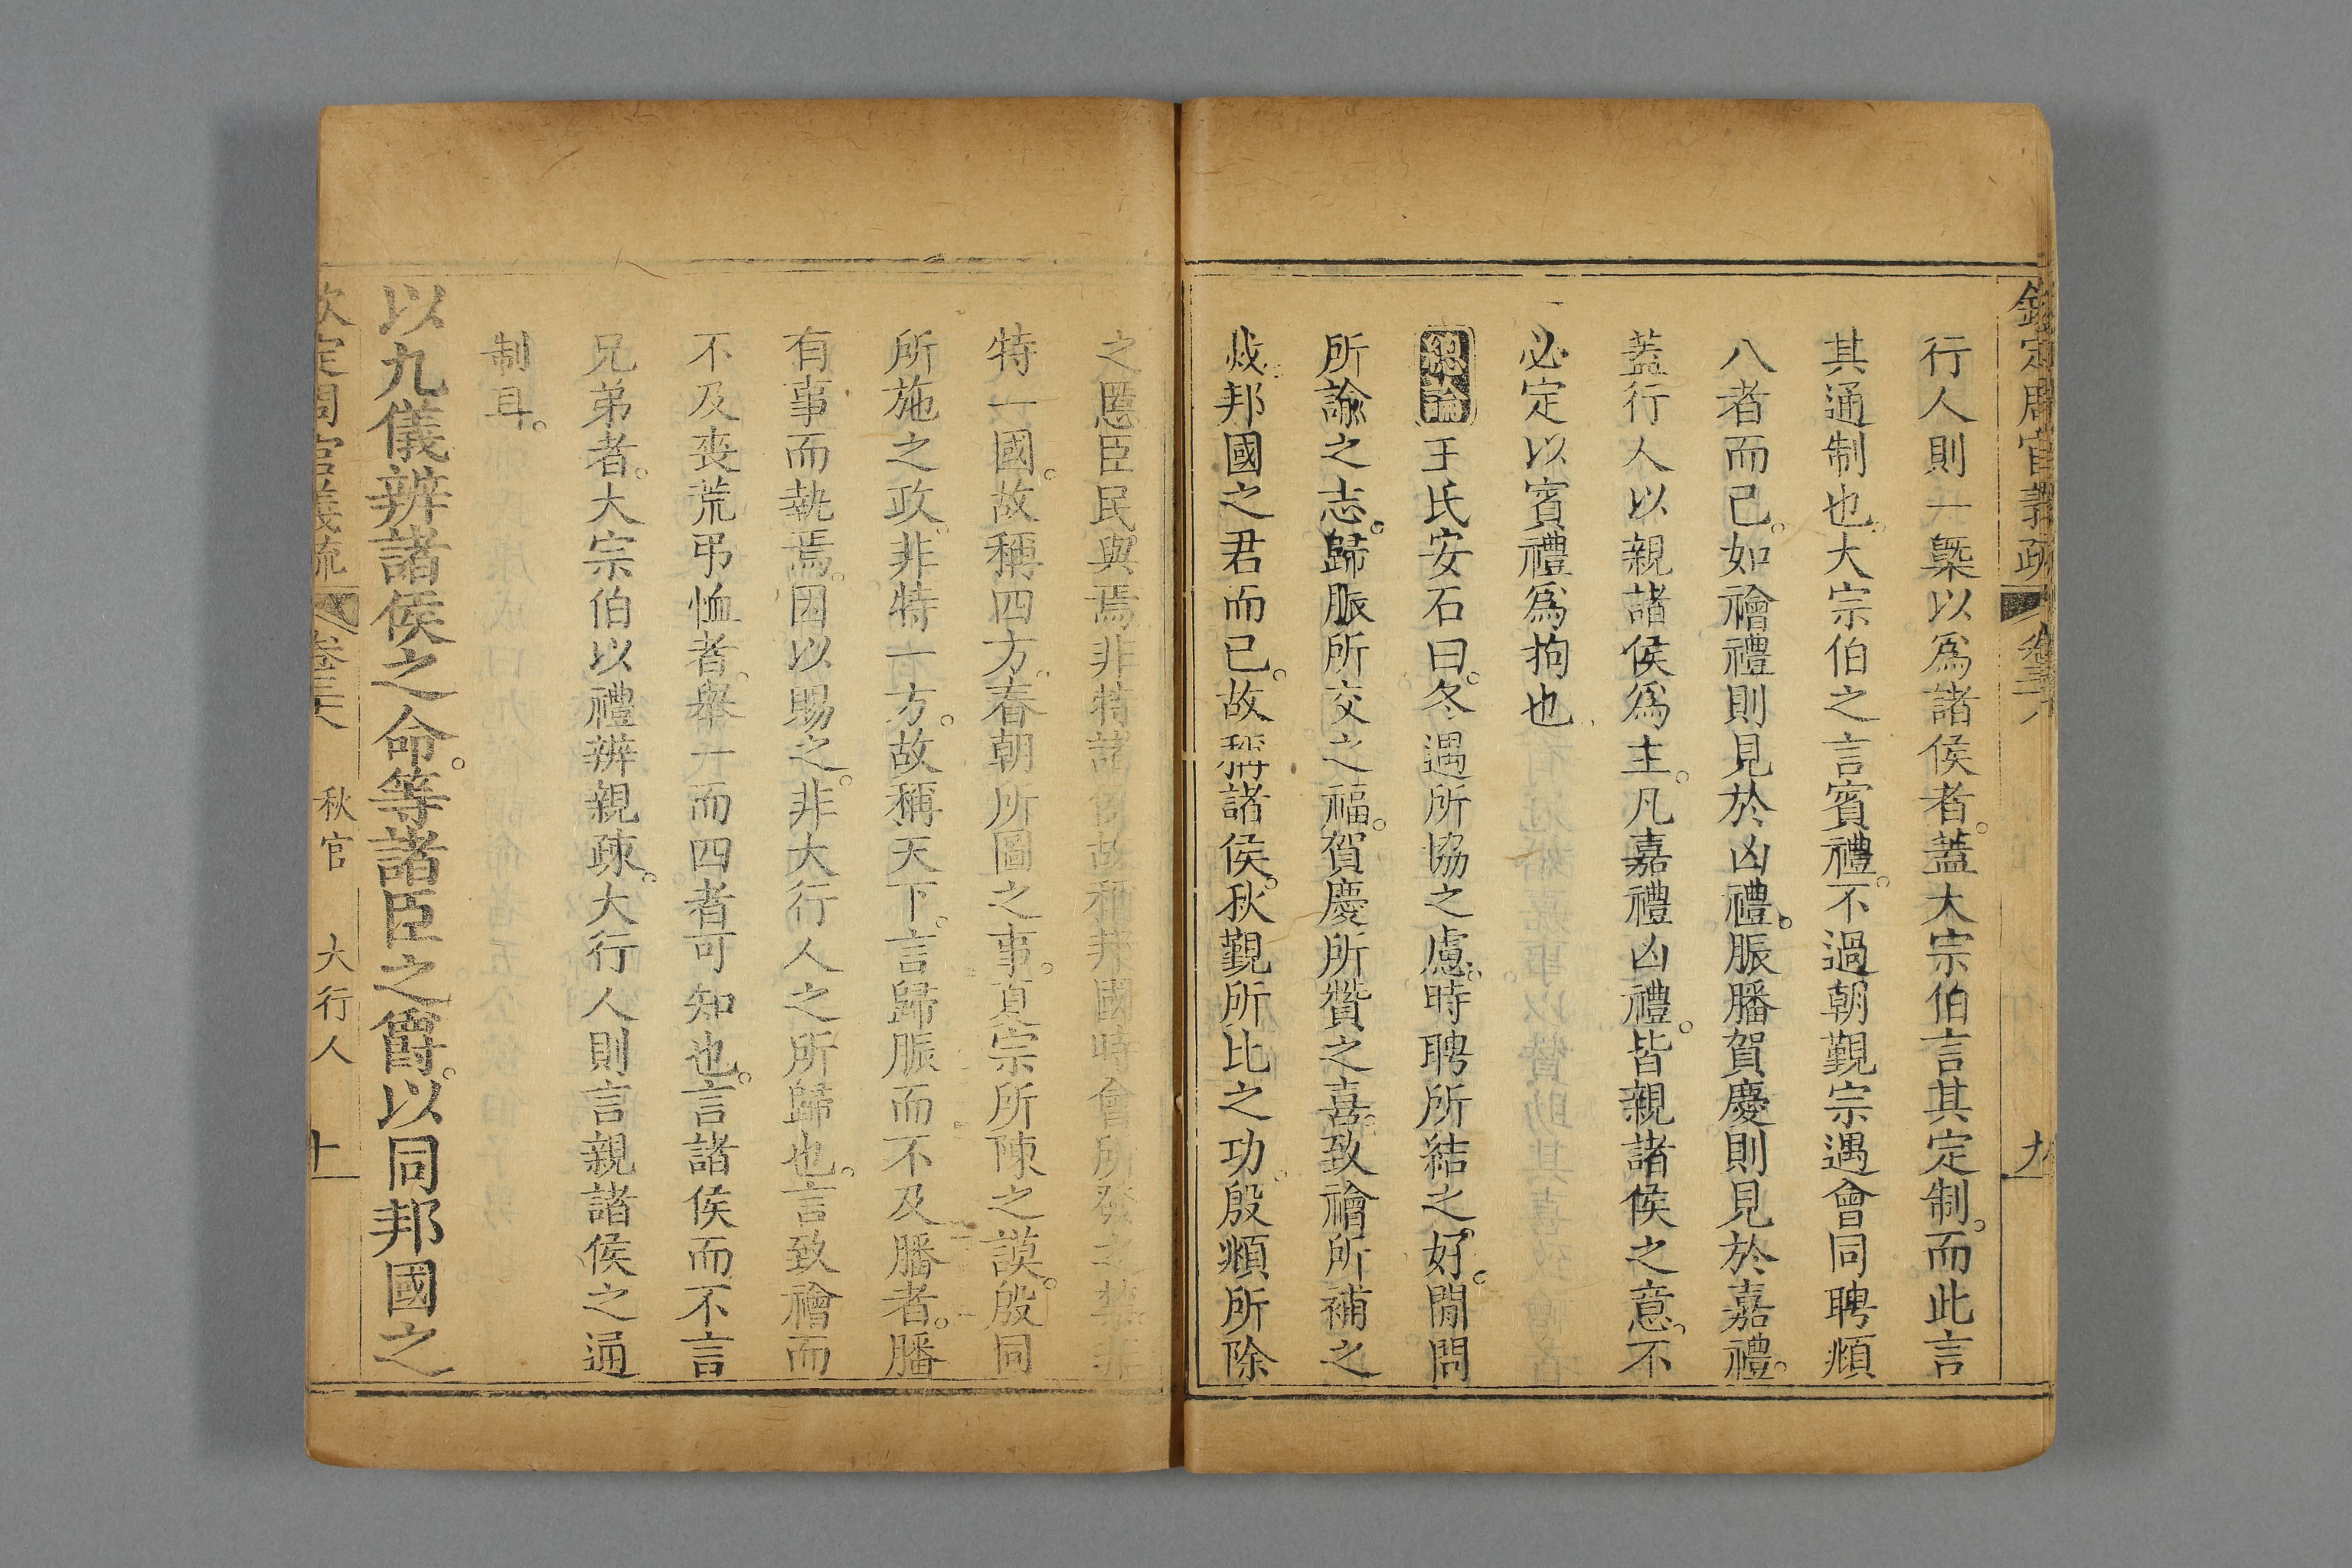 欽定周官義疏 卷三十八 九
行人則一槩以爲諸侯者。蓋大宗伯言其定制。而此言
其通制也。大宗伯之言賓禮。不過朝覲宗遇會同聘頫
八者而已。如禬禮則見於凶禮。脤膰賀慶則見於嘉禮。
蓋行人以親諸侯爲主。凡嘉禮凶禮。皆親諸侯之意。不
必定以賓禮爲拘也
總論 王氏安石曰。冬遇所協之慮。時聘所結之好。閒問
所諭之志。歸脤所交之福。賀慶所贊之喜。致禬所補之
烖邦國之君而已。故稱諸侯。秋覲所比之功。殷頫所除
之慝臣民與焉。非特諸侯故稱邦國時會所發之禁。非
特一國。故稱四方。春朝所圖之事。夏宗所陳之謨。殷同
所施之政。非特一方。故稱天下。言歸脤而不及膰者。膰
有事而執焉。因以賜之。非大行人之所歸也。言致禬而
不及喪荒弔恤者。舉一而四者可知也。言諸侯而不言
兄弟者。大宗伯以禮辨親疎。大行人則言親諸侯之通
制耳。
以九儀辨諸侯之命。等諸臣之爵。以同邦國之
欽定周官義疏 卷三十八 秋官 大行人 十